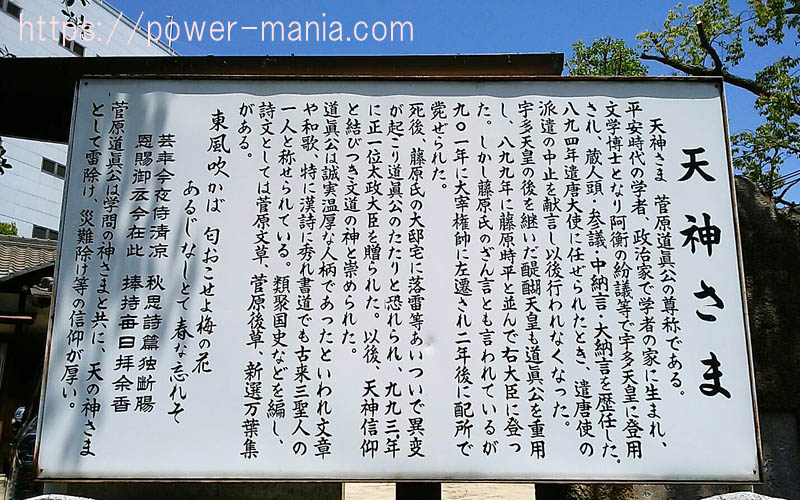 https://power-mania.com
天神さま
天神さま 菅原道眞公の尊称である。
平安時代の学者、政治家で学者の家に生まれ、
文学博士となり阿衡の紛議等で宇多天皇に登用
され、蔵人頭・参議・中納言・大納言を歴任した。
八九四年遣唐大使に任ぜられたとき、遣唐使の
派遣の中止を献言し以後行われなくなった。
宇多天皇の後を継いだ醍醐天皇も道眞公を重用
し、八九九年に藤原時平と並んで右大臣に登っ
た。しかし藤原氏のざん言とも言われているが
九〇一年に大宰権帥に左遷され二年後に配所で
薨せられた。
死後、藤原氏の大邸宅に落雷等あいついで異変
が起こり道眞公のたたりと恐れられ、九九三年
に正一位太政大臣を贈られた。以後、天神信仰
と結びつき文道の神と崇められた。
道眞公は誠実温厚な人柄であったといわれ文章
や和歌、特に漢詩に秀れ書道でも古来三聖人の
一人と称せられている。類聚国史などを編し、
詩文としては菅原文草、菅原後草、新選万葉集
がある。
東風吹かば 匂おこせよ梅の花
あるじなしとて 春な忘れそ
去年今夜侍清凉 秋思詩篇独断腸
恩賜御衣今在此 捧持毎日拝余香
菅原道眞公は学問の神さまと共に、天の神さま
として雷除け、災難除け等の信仰が厚い。